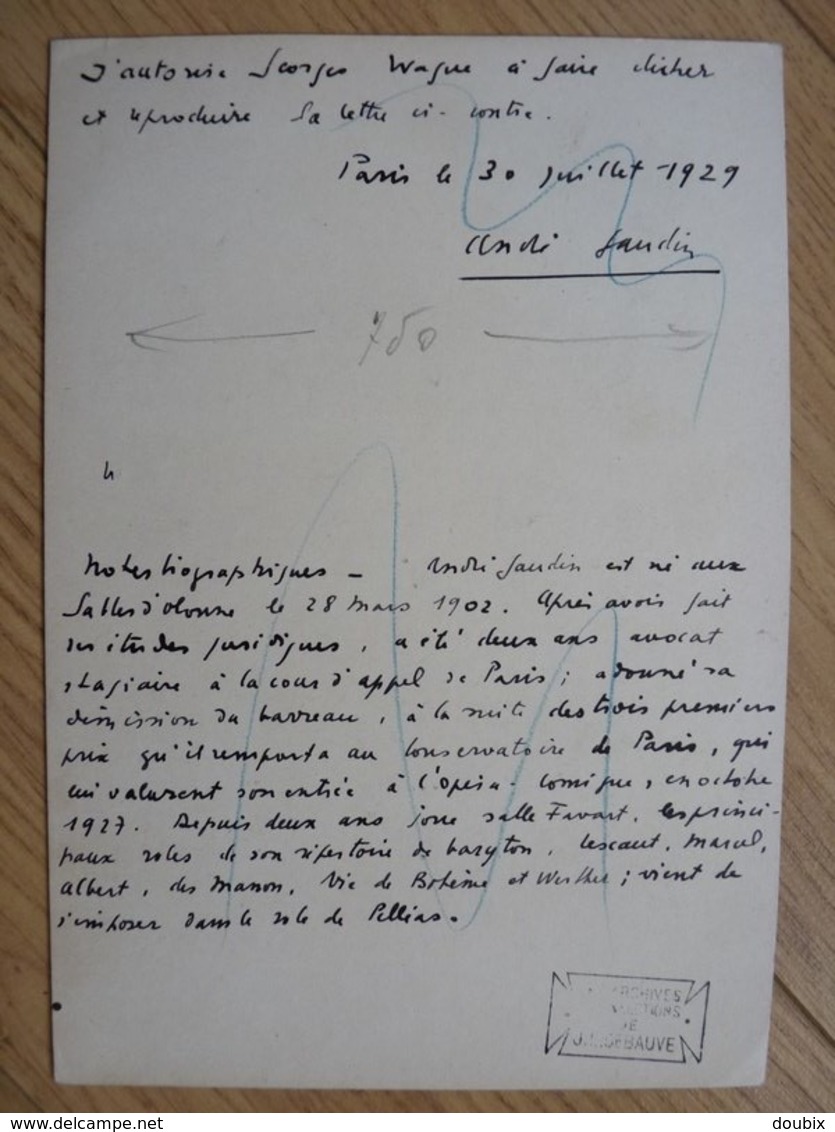 J'autorise Georges Wague à faire clicher
et reproduire la lettre ci-contre.
Paris le 30 juillet 1929
André Gaudin
750
h
Notes biographiques — André Gaudin est né aux
Sables d'Olonne le 28 Mars 1902. Après avoir fait
ses études juridiques, a été deux ans avocat
stagiaire à la cour d'appel de Paris; a donné sa
démission du barreau, à la suite des trois premiers
prix qu'il remporta au Conservatoire de Paris, qui
lui valurent son entrée à l'Opéra-Comique, en octobre
1927. Depuis deux ans joue salle Favart, les princi-
paux roles de son répertoire de baryton, Lescaut, Marcel,
Albert, des Manon, Vie de Bohème et Werther; vient de
s'imposer dans le role de Pelléas.
ARCHIVES
DE
DEBAUVE
delcampe.net
doubix